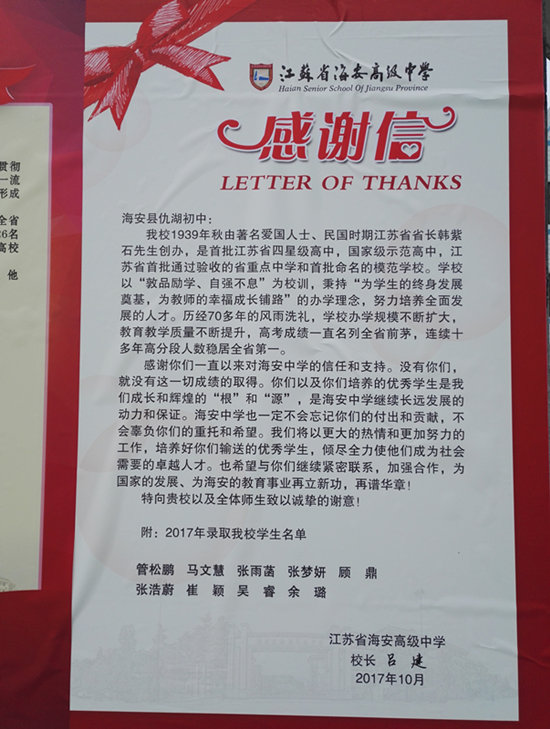 江苏省海安高级中学
Haian Senior School Of Jiangsu Province
感谢信
LETTER OF THANKS
海安县仇湖初中：
我校1939年秋由著名爱国人士、民国时期江苏省省长韩紫
石先生创办，是首批江苏省四星级高中，国家级示范高中，江
苏省首批通过验收的省重点中学和首批命名的模范学校。学校
以“敦品励学、自强不息”为校训，秉持“为学生的终身发展
奠基，为教师的幸福成长铺路”的办学理念，努力培养全面发
展的人才。历经70多年的风雨洗礼，学校办学规模不断扩大，
教育教学质量不断提升，高考成绩一直名列全省前茅，连续十
多年高分段人数稳居全省第一。
感谢你们一直以来对海安中学的信任和支持。没有你们，
就没有这一切成绩的取得。你们以及你们培养的优秀学生是我
们成长和辉煌的“根”和“源”，是海安中学继续长远发展的
动力和保证。海安中学也一定不会忘记你们的付出和贡献，不
会辜负你们的重托和希望。我们将以更大的热情和更加努力的
工作，培养好你们输送的优秀学生，倾尽全力使他们成为社会
需要的卓越人才。也希望与你们继续紧密联系，加强合作，为
国家的发展、为海安的教育事业再立新功，再谱华章！
特向贵校以及全体师生致以诚挚的谢意！
附：2017年录取我校学生名单
管松鹏 马文慧 张雨菡 张梦妍 顾 鼎
张浩蔚 崔 颖 吴 睿 余 璐
江苏省海安高级中学
校长 吕建
2017年10月
贯彻
一流
形成
全省
26名
高校
他